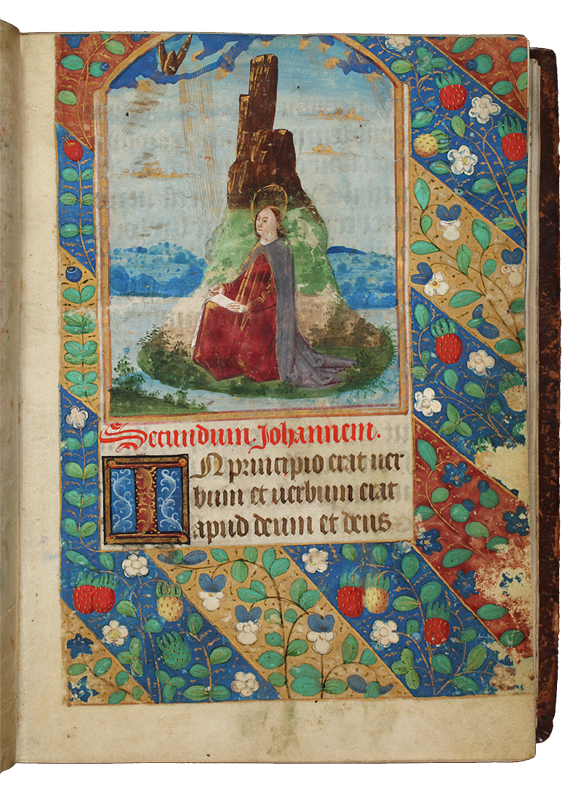 Secundum Johannem.
IN principio erat uer
bum et uerbum erat
apud deum et deus